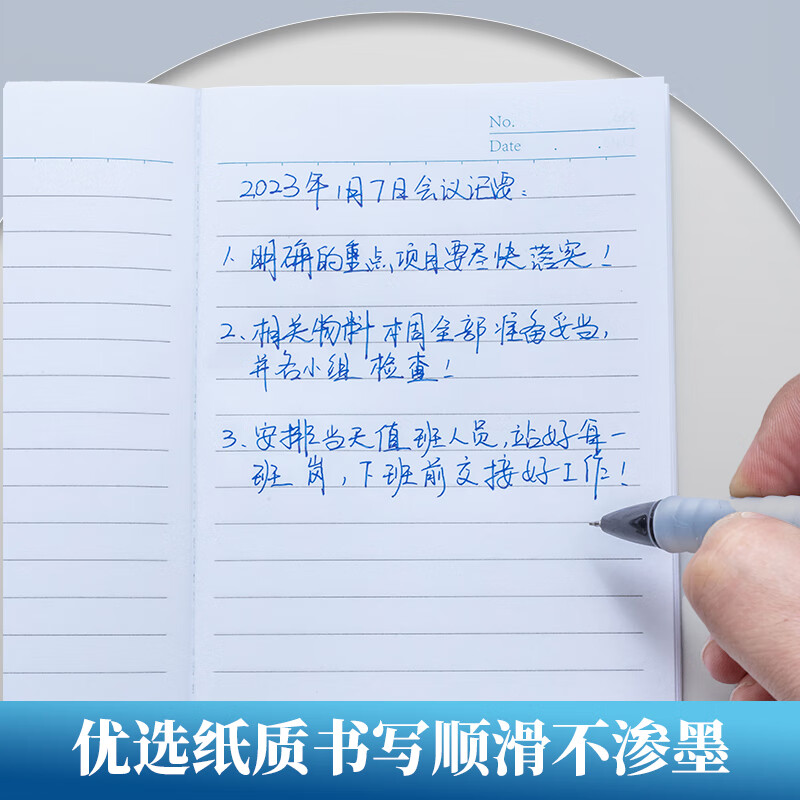 No.
Date . .
2023年1月7日会议记要：
1、明确的重点项目要尽快落实！
2、相关物料本周全部准备妥当，
并各小组检查！
3、安排当天值班人员，站好每一
班岗，下班前交接好工作！
优选纸质书写顺滑不渗墨